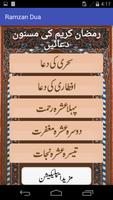 4:17
Ramzan Dua
رمضان کریم کی مسنون
دعائیں
سحری کی دعا
افطاری کی دعا
پہلا عشرہ رحمت
دوسرہ عشرہ مغفرت
تیسرہ عشرہ نجات
مزید اپلیکیشن